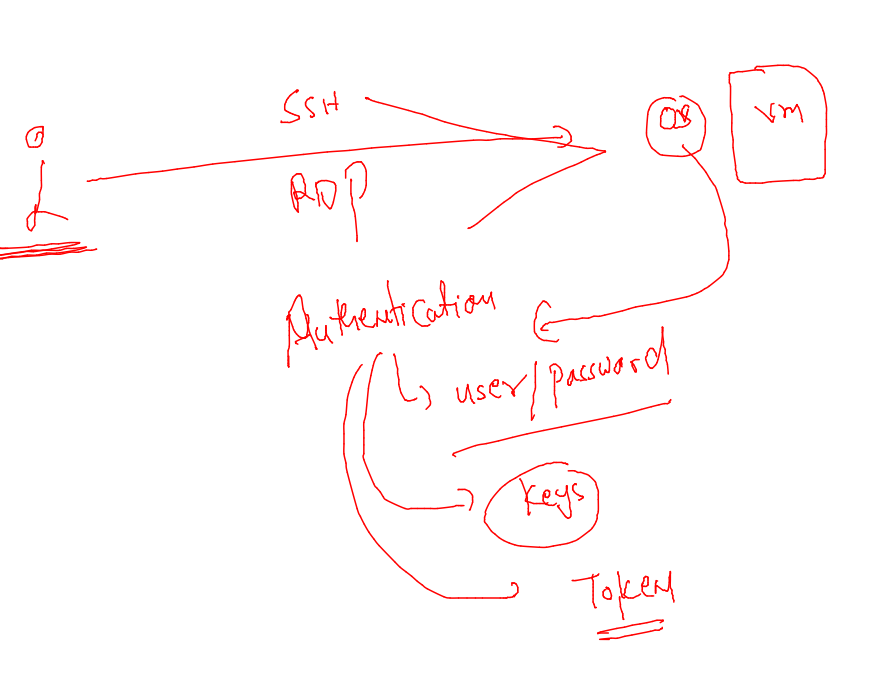 SSH
OS
Vm
RDP
Authentication
user/password
Keys
Token